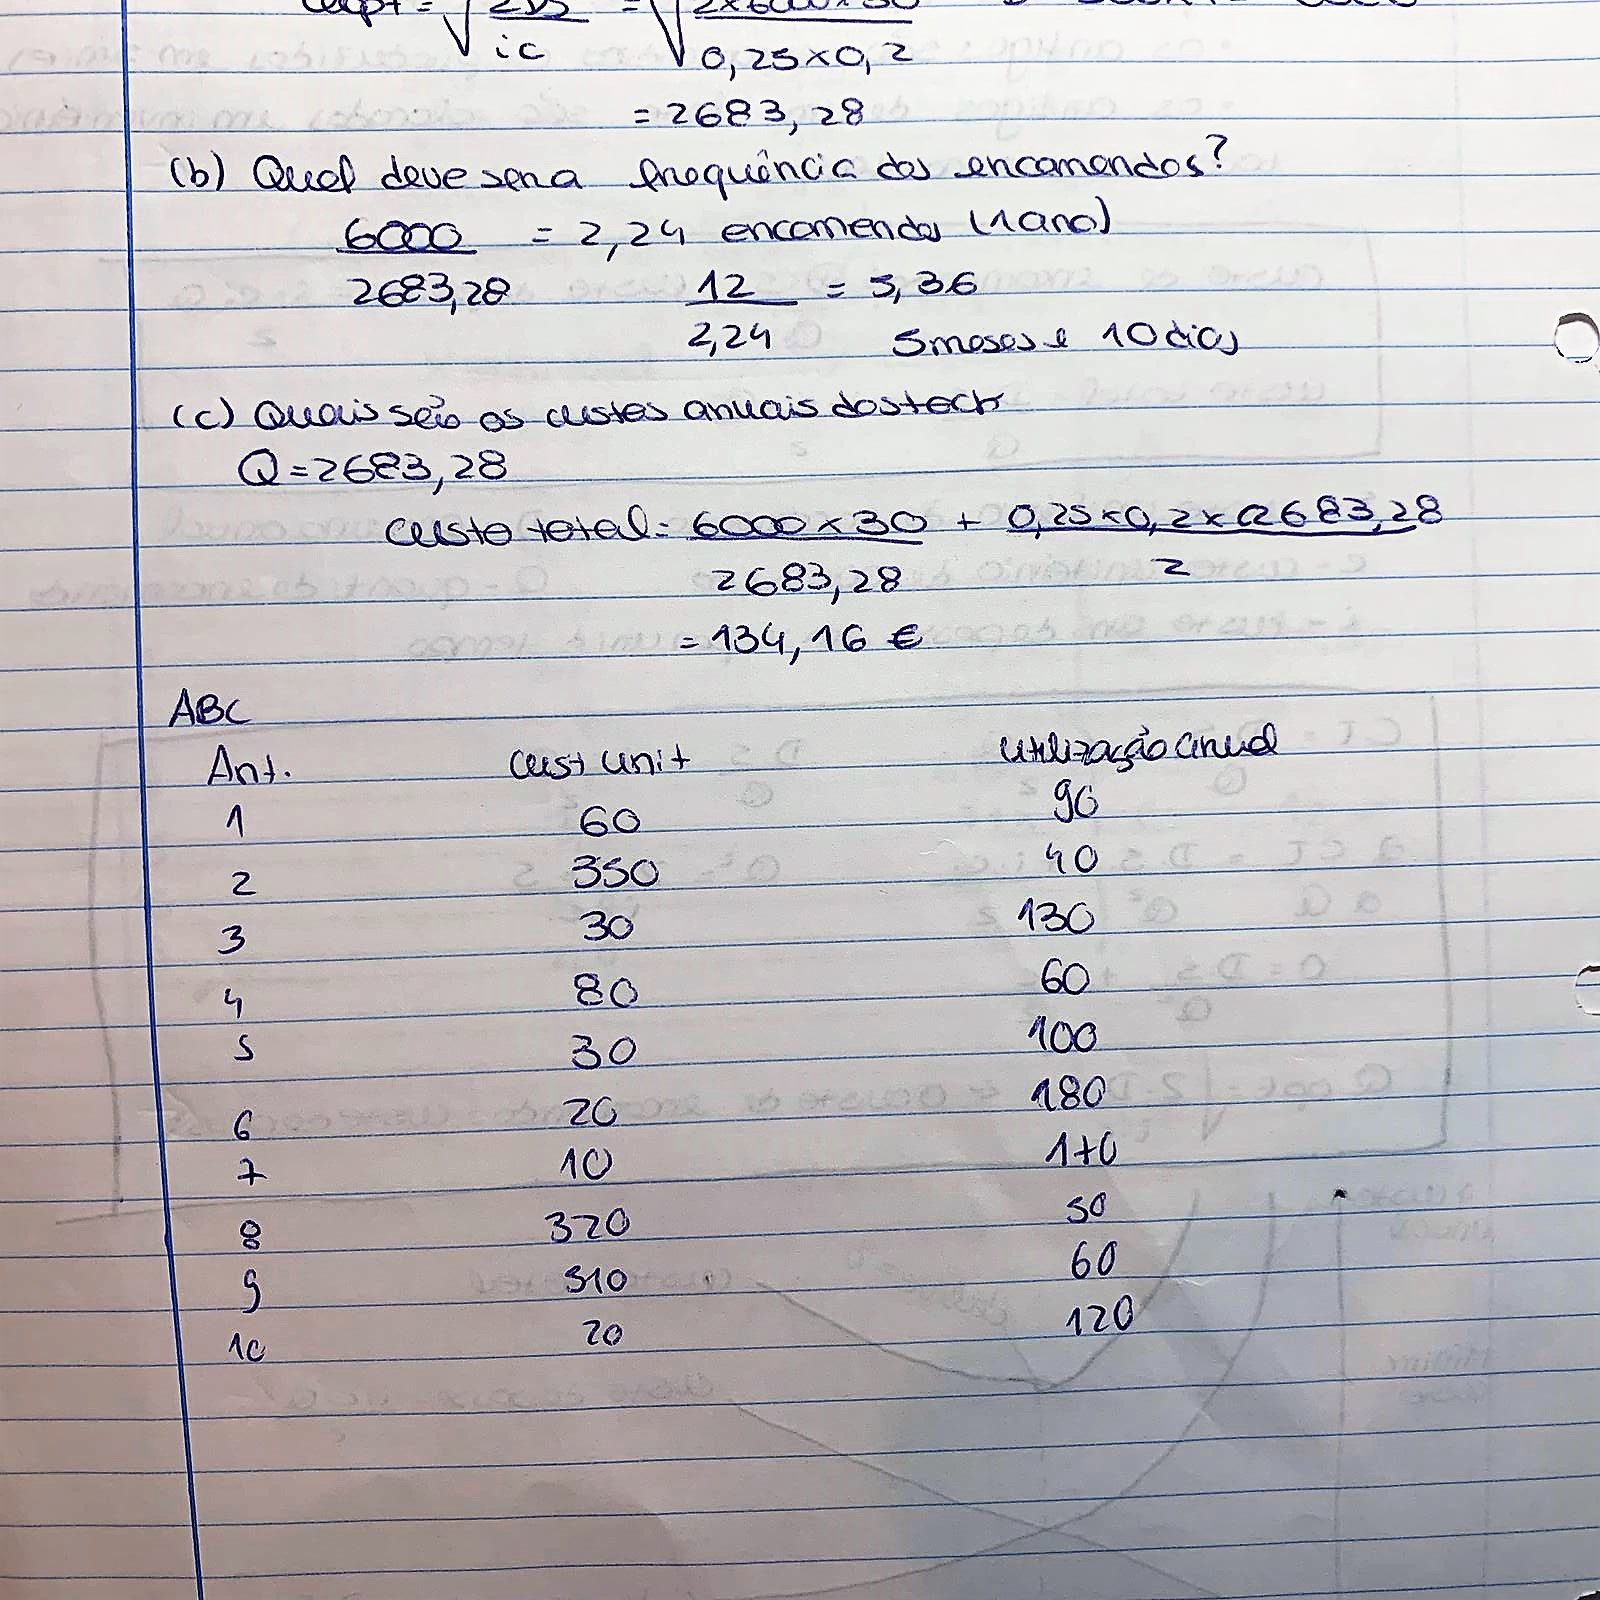 = √ 2DS / ic = √ 2x6000x30 / 0,25x0,2
= 2683,28
(b) Qual deve ser a frequência das encomendas?
6000 / 2683,28 = 2,24 encomendas (1 ano)
12 / 2,24 = 5,36
5 meses e 10 dias
(c) Quais são os custes anuais do stock
Q = 2683,28
Custo total = 6000 x 30 / 2683,28 + 0,25 x 0,2 x 2683,28 / 2
= 134,16 €
ABC
Art. Cust unit utilização anual
1 60 90
2 350 40
3 30 130
4 80 60
5 30 100
6 20 180
7 10 170
8 320 50
9 510 60
10 20 120